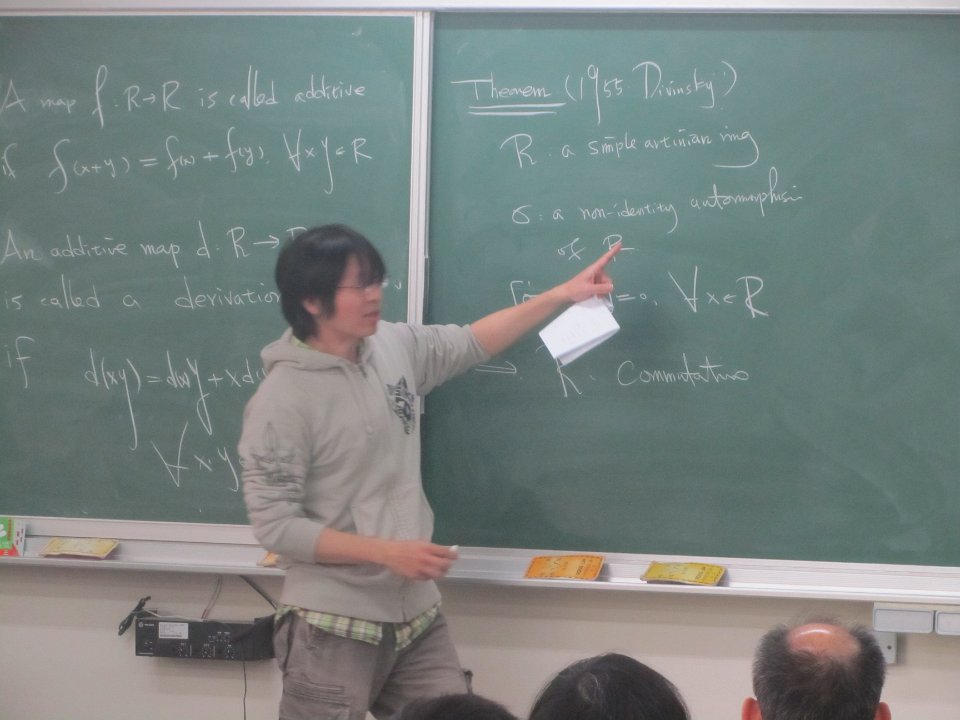 A map f : R→R is called additive
if f(x+y) = f(x) + f(y), ∀ x y ∈ R
An additive map d : R →
is called a derivation
if d(xy) = d(x)y + x d
∀ x, y
Theorem (1955. Divinsky)
R : a simple artinian ring
σ : a non-identity automorphism
of R
= 0, ∀ x ∈ R
⇒ R : Commutative